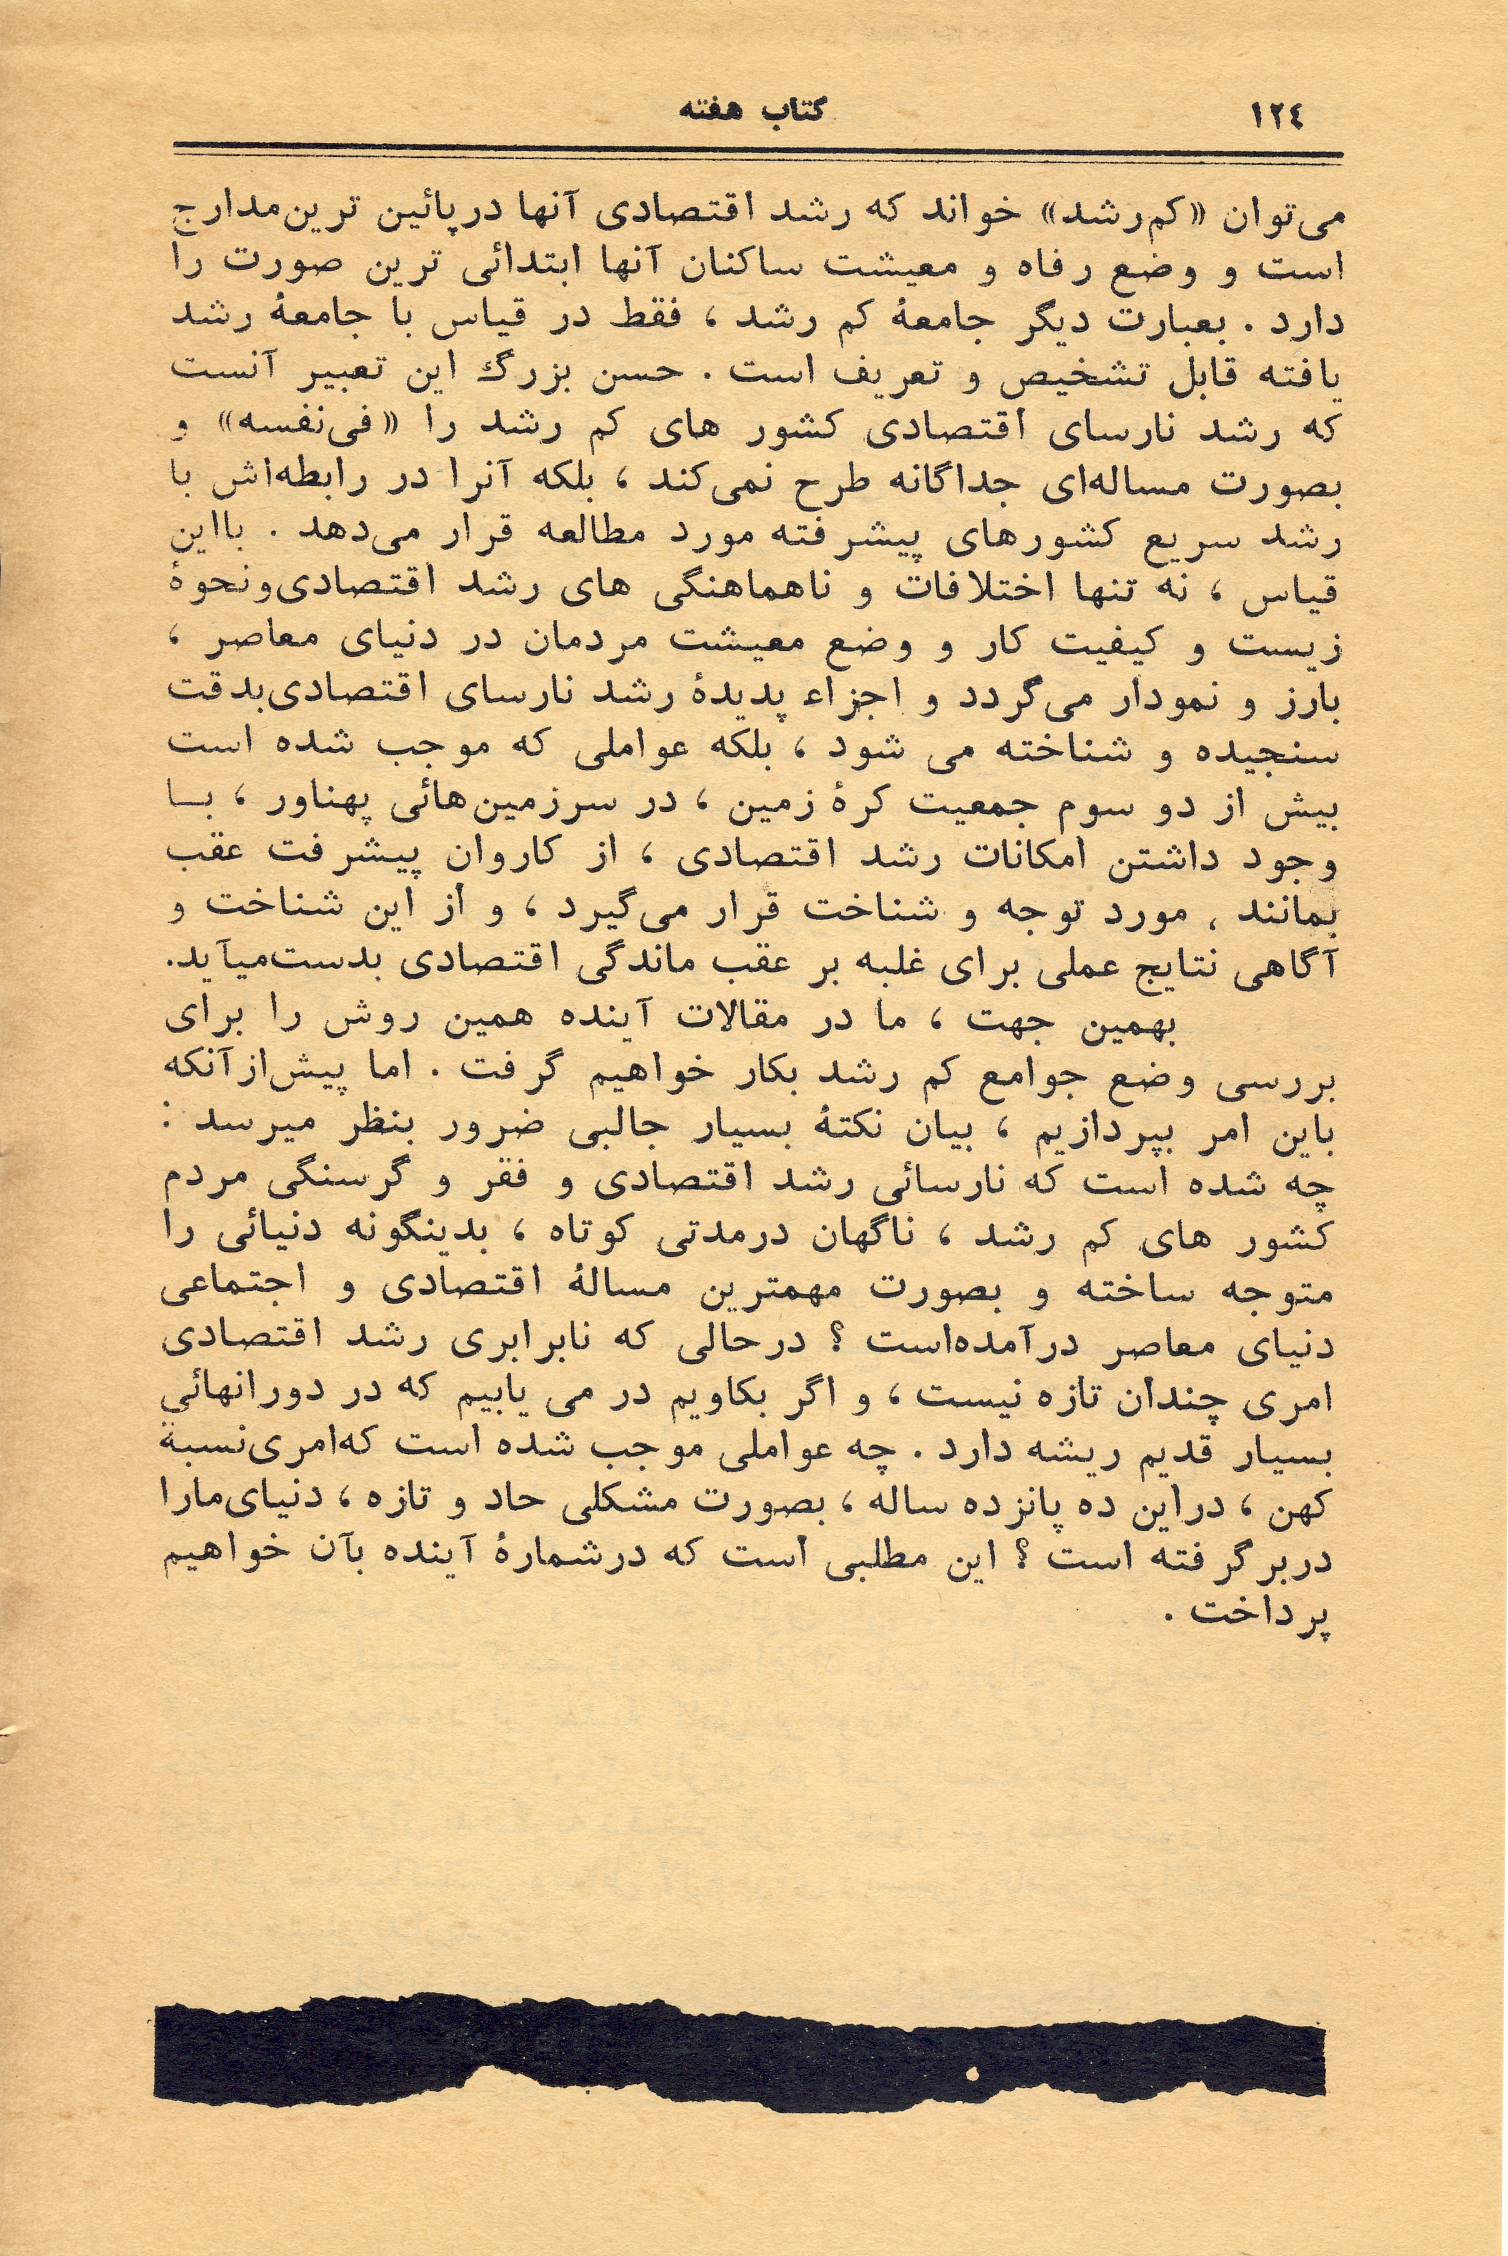 ۱۲٤ کتاب هفته
می‌توان «کم‌رشد» خواند که رشد اقتصادی آنها درپائین ترین‌مدارج
است و وضع رفاه و معیشت ساکنان آنها ابتدائی ترین صورت را
دارد . بعبارت دیگر جامعهٔ کم رشد ، فقط در قیاس با جامعهٔ رشد
یافته قابل تشخیص و تعریف است . حسن بزرگ این تعبیر آنست
که رشد نارسای اقتصادی کشور های کم رشد را «فی‌نفسه» و
بصورت مساله‌ای جداگانه طرح نمی‌کند ، بلکه آنرا در رابطه‌اش با
رشد سریع کشورهای پیشرفته مورد مطالعه قرار می‌دهد . بااین
قیاس ، نه تنها اختلافات و ناهماهنگی های رشد اقتصادی‌ونحوهٔ
زیست و کیفیت کار و وضع معیشت مردمان در دنیای معاصر ،
بارز و نمودار می‌گردد و اجزاء پدیدهٔ رشد نارسای اقتصادی‌بدقت
سنجیده و شناخته می شود ، بلکه عواملی که موجب شده است
بیش از دو سوم جمعیت کرهٔ زمین ، در سرزمین‌هائی پهناور ، بـا
وجود داشتن امکانات رشد اقتصادی ، از کاروان پیشرفت عقب
بمانند ، مورد توجه و شناخت قرار می‌گیرد ، و از این شناخت و
آگاهی نتایج عملی برای غلبه بر عقب ماندگی اقتصادی بدست‌میآید.
بهمین جهت ، ما در مقالات آینده همین روش را برای
بررسی وضع جوامع کم رشد بکار خواهیم گرفت . اما پیش‌ازآنکه
باین امر بپردازیم ، بیان نکتهٔ بسیار جالبی ضرور بنظر میرسد :
چه شده است که نارسائی رشد اقتصادی و فقر و گرسنگی مردم
کشور های کم رشد ، ناگهان درمدتی کوتاه ، بدینگونه دنیائی را
متوجه ساخته و بصورت مهمترین مسالهٔ اقتصادی و اجتماعی
دنیای معاصر درآمده‌است ؟ درحالی که نابرابری رشد اقتصادی
امری چندان تازه نیست ، و اگر بکاویم در می یابیم که در دورانهائی
بسیار قدیم ریشه دارد . چه عواملی موجب شده است که‌امری‌نسبة
کهن ، دراین ده پانزده ساله ، بصورت مشکلی حاد و تازه ، دنیای‌مارا
دربرگرفته است ؟ این مطلبی است که درشمارهٔ آینده بآن خواهیم
پرداخت .